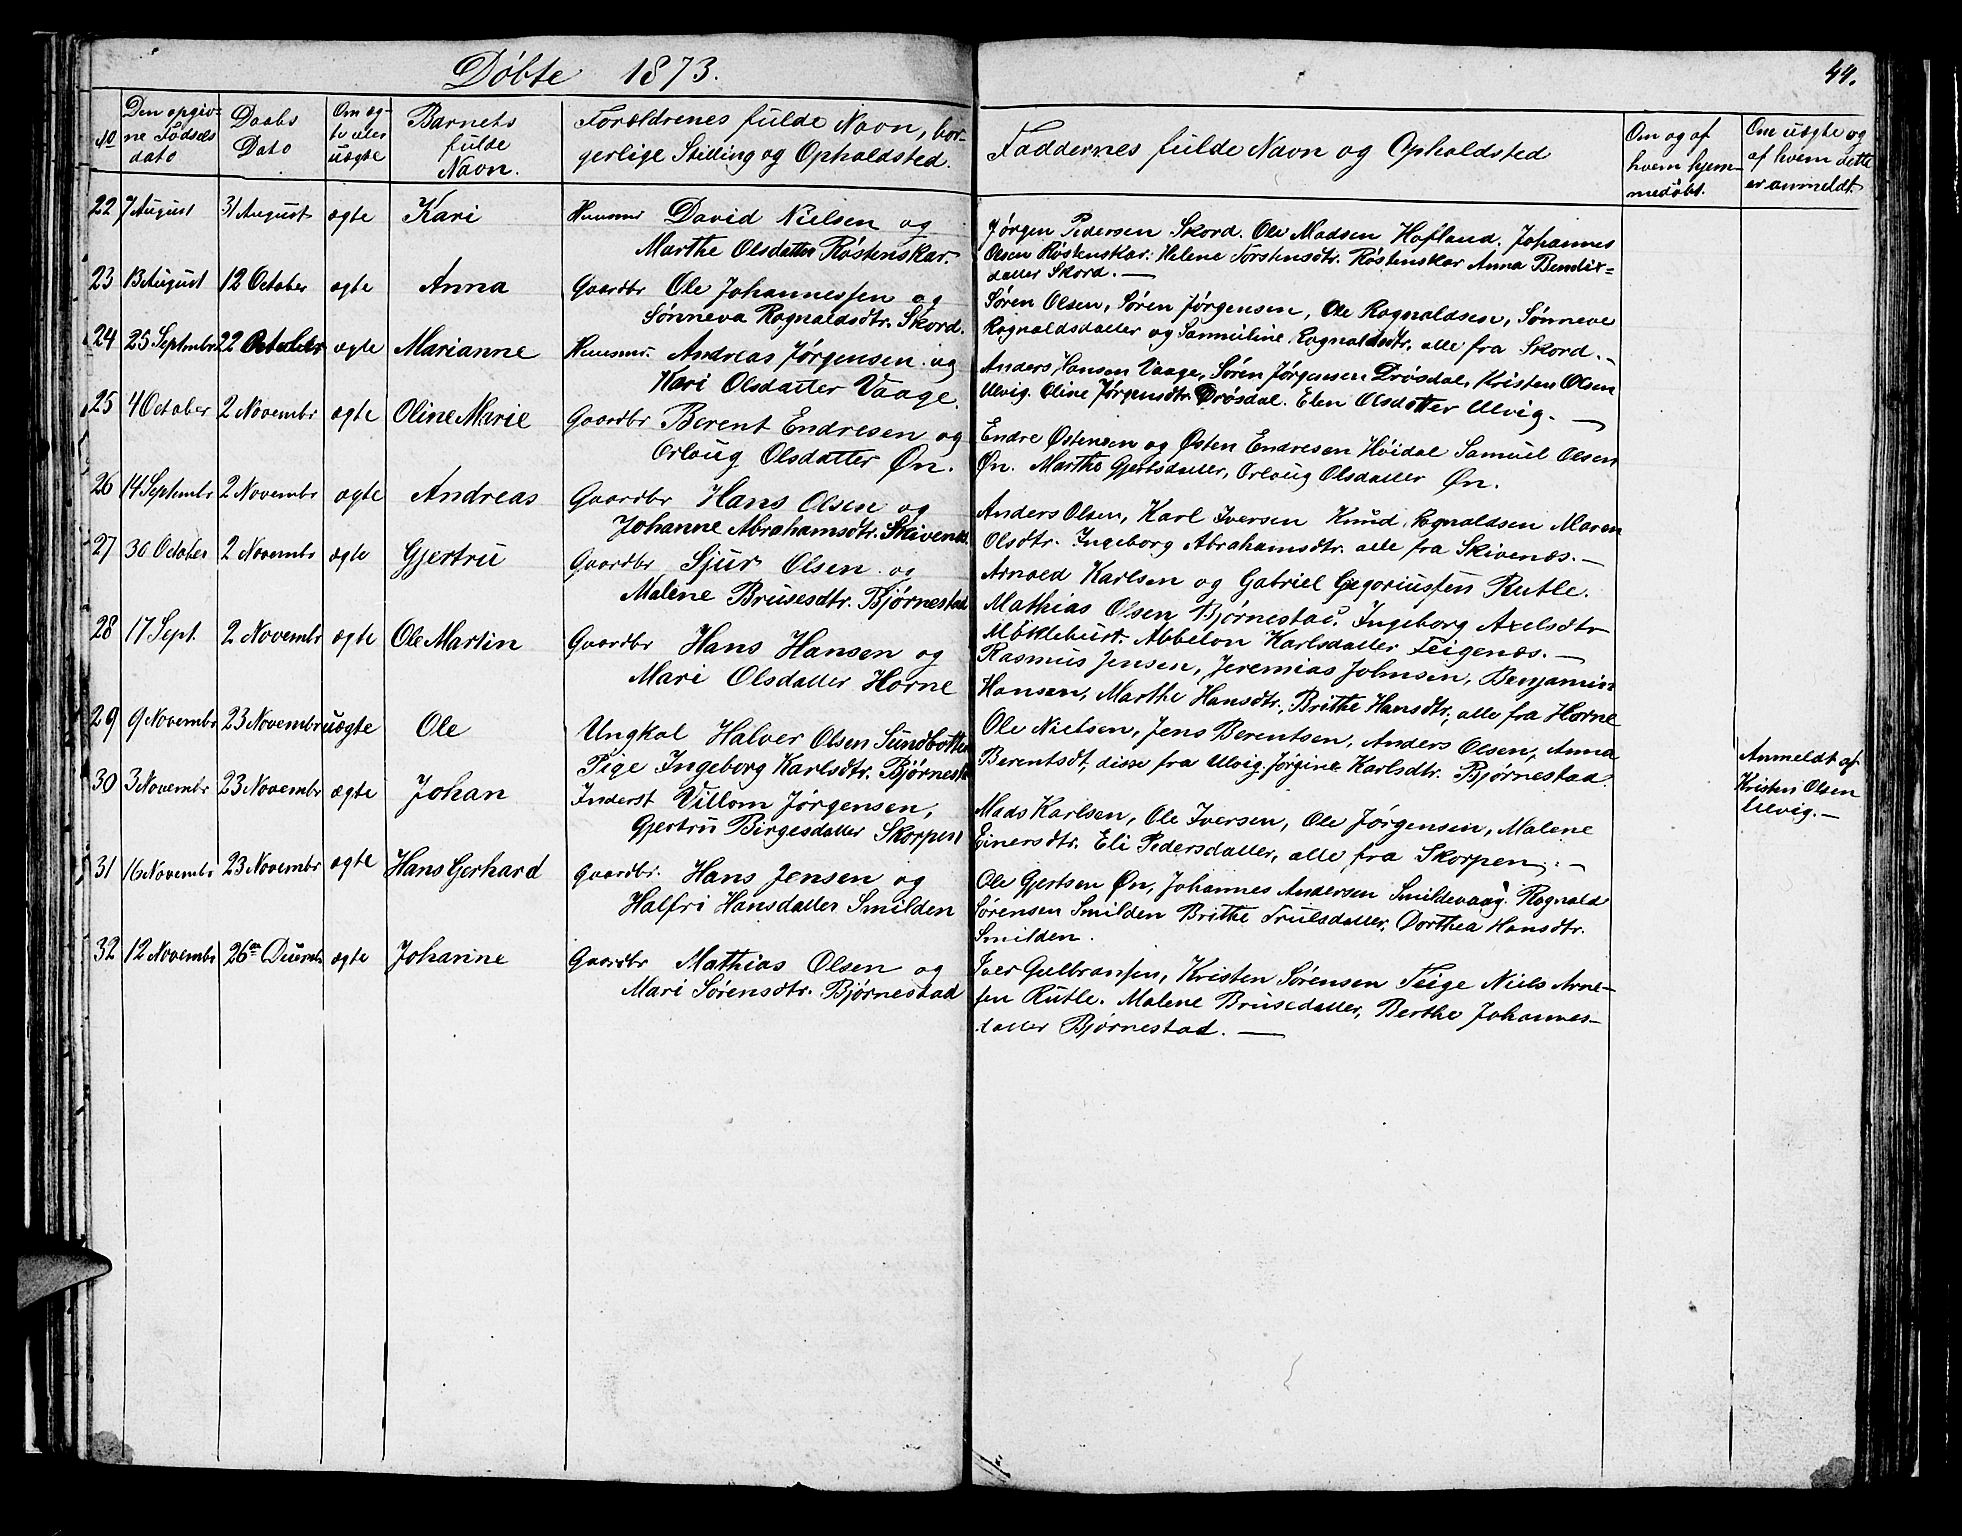 Døbte 1873.
44.
No
Den opgiv-
ne Fødsels
dato
Daabs
Dato
Om æg-
te eller
uægte
Barnets
fulde
Navn.
Forældrenes fulde Navn, bor-
gerlige Stilling og Opholdsted.
Faddernes fulde Navn og Opholdsted
Om og af
hvem hjem-
medøbt.
Om uægte og
af hvem dette
er anmeldt.
22 7 August 31 August ægte Kari Huusmd David Nielsen og
Marthe Olsdatter Røstenskar.
Jørgen Pedersen Skord. Ole Madsen Hofland. Johannes
Olsen Røstenskar. Helene Torstensdtr. Røstenskar Anna Bendix-
datter Skord. —
23 13 August 12 October ægte Anna Gaardbr Ole Johannessen og
Sønneva Rognaldsdtr. Skord.
Søren Olsen, Søren Jørgensen, Ole Rognaldsen, Sønneve
Rognaldsdatter og Samueline Rognaldsdtr. alle fra Skord. —
24 25 Septembr 22 October ægte Marianne Huusmd. Andreas Jørgensen og
Kari Olsdatter Vaage.
Anders Hansen Vaage, Søren Jørgensen Drøsdal, Kristen Olsen
Ulvig. Oline Jørgensdtr. Drøsdal. Elen Olsdatter Ulvig. —
25 4 October 2 Novembr ægte Oline Marie Gaardbr Berent Endresen og
Orloug Olsdatter Øn.
Endre Østensen og Østen Endresen Høidal Samuel Olsen
Øn. Marthe Gjertsdatter, Orloug Olsdatter Øn.
26 14 Septembr 2 Novembr ægte Andreas Gaardbr Hans Olsen og
Johanne Abrahamsdtr. Skivenes
Anders Olsen, Karl Iversen Knud Rognaldsen Maren
Olsdtr. Ingeborg Abrahamsdtr. alle fra Skivenæs. —
27 30 October 2 Novembr ægte Gjertru Gaardbr Sjur Olsen og
Malene Brusesdtr. Bjørnestad
Arnold Karlsen og Gabriel Gregoriussen Rutle.
Mathias Olsen Bjørnestad. Ingeborg Axelsdtr
Møklebust. Abbelon Karlsdatter Teigenæs. —
28 17 Sept. 2 Novembr ægte Ole Martin Gaardbr Hans Hansen og
Mari Olsdatter Horne
Rasmus Jensen, Jeremias Johnsen, Benjamin
Hansen, Marthe Hansdtr., Brithe Hansdtr, alle fra Horne
29 9 Novembr 23 Novembr uægte Ole Ungkal Halver Olsen Sundbotten
Pige Ingeborg Karlsdtr. Bjørnestad
Ole Nielsen, Jens Berentsen, Anders Olsen, Anna
Berentsdt, disse fra Ulvig. Jørgine Karlsdtr. Bjørnestad.
Anmeldt af
Kristen Olsen
Ulvig. —
30 3 Novembr 23 Novembr ægte Johan Inderst Villom Jørgensen,
Gjertru Birgesdatter Skorpen
Mads Karlsen, Ole Iversen, Ole Jørgensen, Malene
Einersdtr. Eli Pedersdatter, alle fra Skorpen. —
31 16 Novembr 23 Novembr ægte Hans Gerhard Gaardbr. Hans Jensen og
Halfri Hansdatter Smilden
Ole Gjertsen Øn, Johannes Andersen Smildevaag. Rognald
Sørensen Smilden Brithe Trulsdatter, Dorthea Hansdtr.
Smilden.
32 12 Novembr 26de Decembr ægte Johanne Gaardbr Mathias Olsen og
Mari Sørensdtr. Bjørnestad
Iver Gulbransen, Kristen Sørensen Teige Niels Arne-
sen Rutle. Malene Brusedatter, Berthe Johannes-
datter Bjørnestad. —